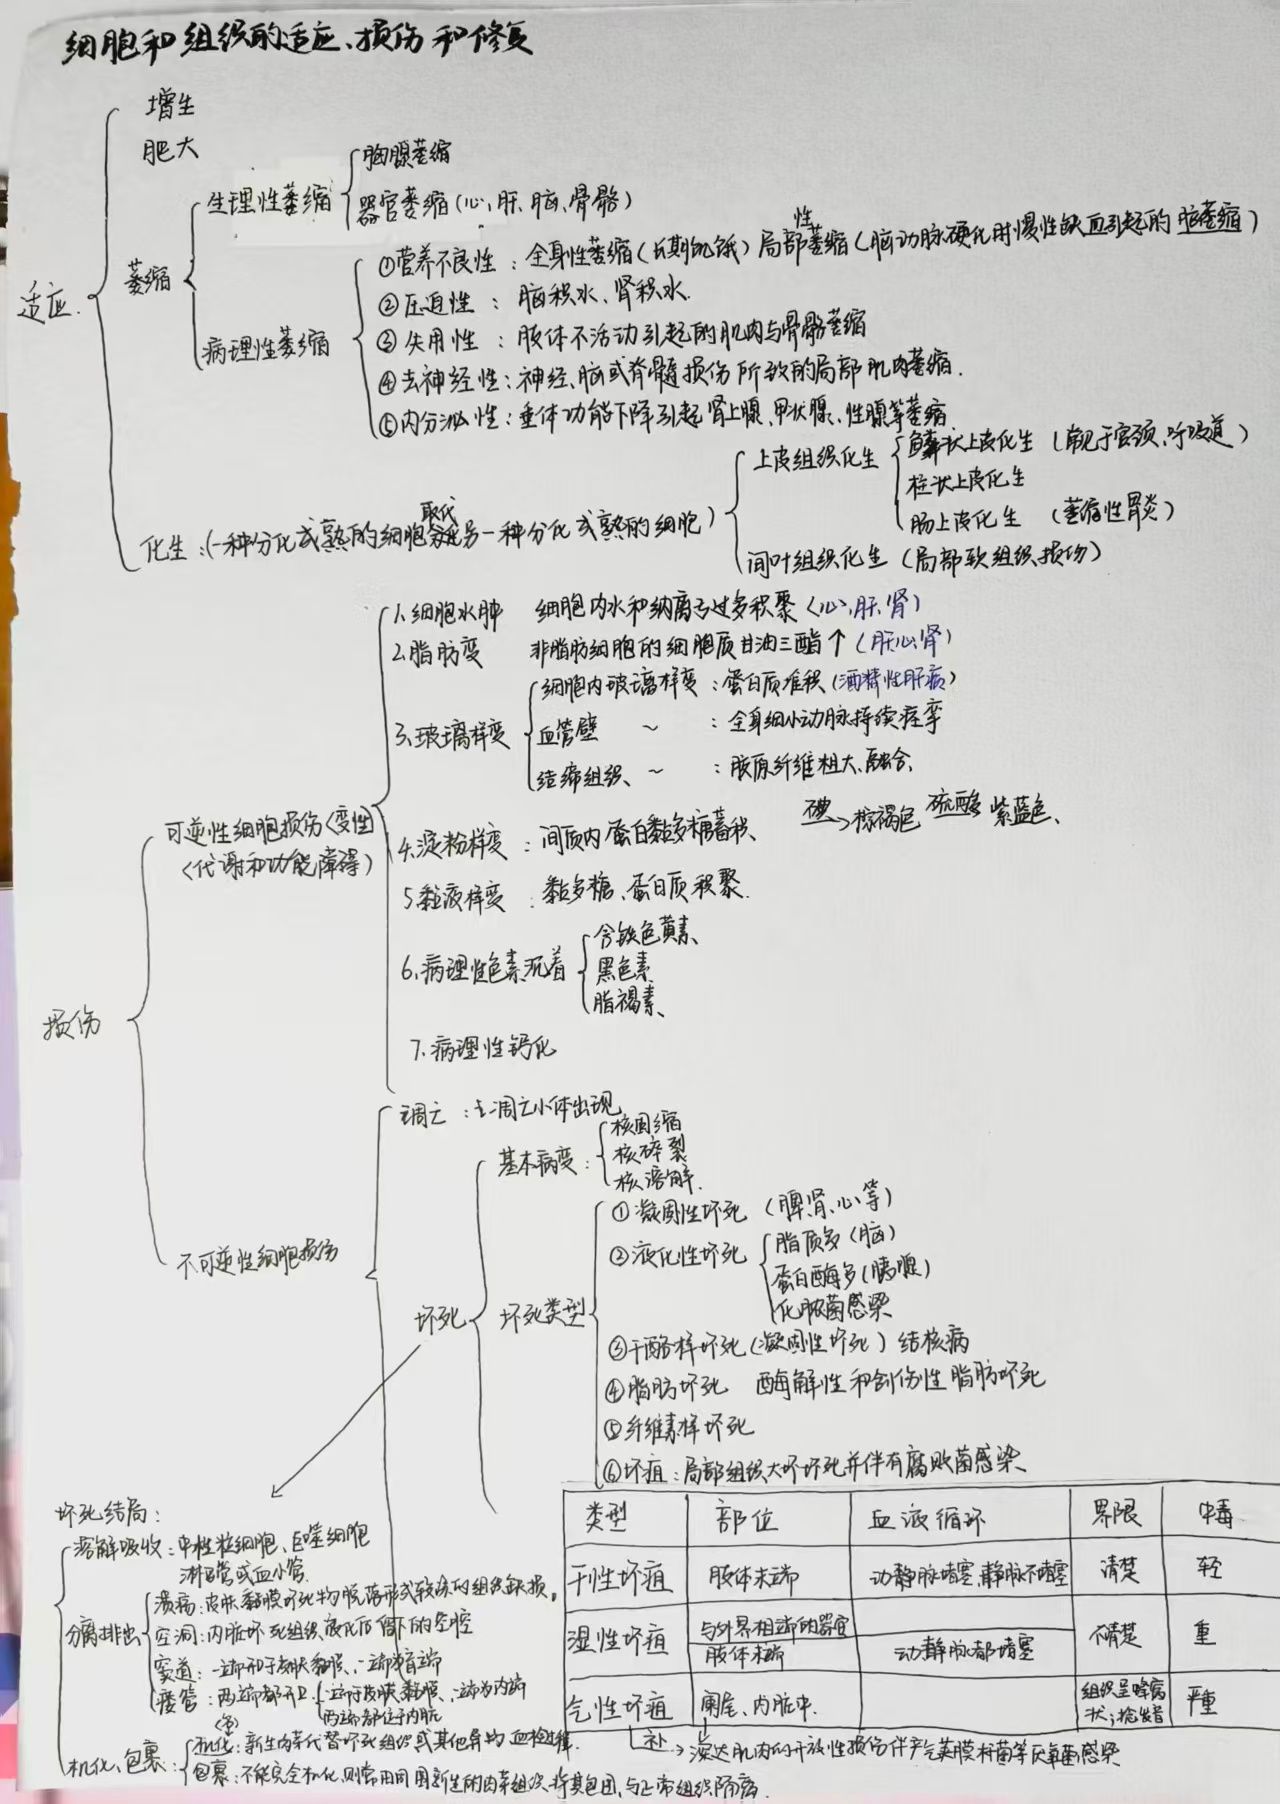 细胞和组织的适应、损伤和修复
适应.
增生
肥大
萎缩
生理性萎缩
胸腺萎缩
器官萎缩(心,肝,脑,骨骼)
病理性萎缩
①营养不良性:全身性萎缩(长期饥饿)局部性萎缩(脑动脉硬化时慢性缺血引起的脑萎缩)
②压迫性:脑积水、肾积水.
③失用性:肢体不活动引起的肌肉与骨骼萎缩
④去神经性:神经、脑或脊髓损伤所致的局部肌肉萎缩.
⑤内分泌性:垂体功能下降引起肾上腺、甲状腺、性腺等萎缩.
化生:(一种分化成熟的细胞取代另一种分化成熟的细胞)
上皮组织化生
鳞状上皮化生(常见于宫颈、呼吸道)
柱状上皮化生
肠上皮化生(萎缩性胃炎)
间叶组织化生(局部软组织损伤)
损伤
可逆性细胞损伤<变性>
(代谢和功能障碍)
1.细胞水肿 细胞内水和钠离子过多积聚(心、肝、肾)
2.脂肪变 非脂肪细胞的细胞质甘油三酯↑(肝心肾)
3.玻璃样变
细胞内玻璃样变:蛋白质堆积(酒精性肝病)
血管壁 ~ :全身细小动脉持续痉挛
结缔组织 ~ :胶原纤维粗大、融合、
4.淀粉样变:间质内蛋白黏多糖蓄积、 碘→棕褐色 硫酸→紫蓝色、
5.黏液样变:黏多糖、蛋白质积聚.
6.病理性色素沉着
含铁色黄素、
黑色素
脂褐素、
7.病理性钙化
不可逆性细胞损伤
凋亡:凋亡小体出现
坏死
基本病变:
核固缩
核碎裂
核溶解.
坏死类型
①凝固性坏死(脾肾、心等)
②液化性坏死
脂质多(脑)
蛋白酶多(胰腺)
化脓菌感染
③干酪样坏死(凝固性坏死)结核病
④脂肪坏死 酶解性和创伤性脂肪坏死
⑤纤维素样坏死
⑥坏疽:局部组织大坏坏死并伴有腐败菌感染
类型 部位 血液循环 界限 中毒
干性坏疽 肢体末端 动静脉堵塞,静脉不堵塞 清楚 轻
湿性坏疽 与外界相端的器官 不清楚 重
肢体末端 动静脉都堵塞
气性坏疽 阑尾、内脏中. 组织呈蜂窝状, 严重
补→深达肌肉的开放性损伤伴产气荚膜杆菌等厌氧菌感染
坏死结局:
溶解吸收:中性粒细胞、巨噬细胞
淋巴管或血小管.
分离排出
溃疡:皮肤黏膜坏死物脱落形成较深的组织缺损。
空洞:内脏坏死组织液化后留下的空腔
窦道:一端开于皮肤黏膜、一端为盲端
瘘管:两端都开口
一端于皮肤黏膜、一端为内端
两端都位于内脏
机化、包裹:
机化:新生肉芽代替坏死组织或其他异物 血栓过程.
包裹:不能完全机化,则常由周围新生的肉芽组织将其包围,与正常组织隔离.